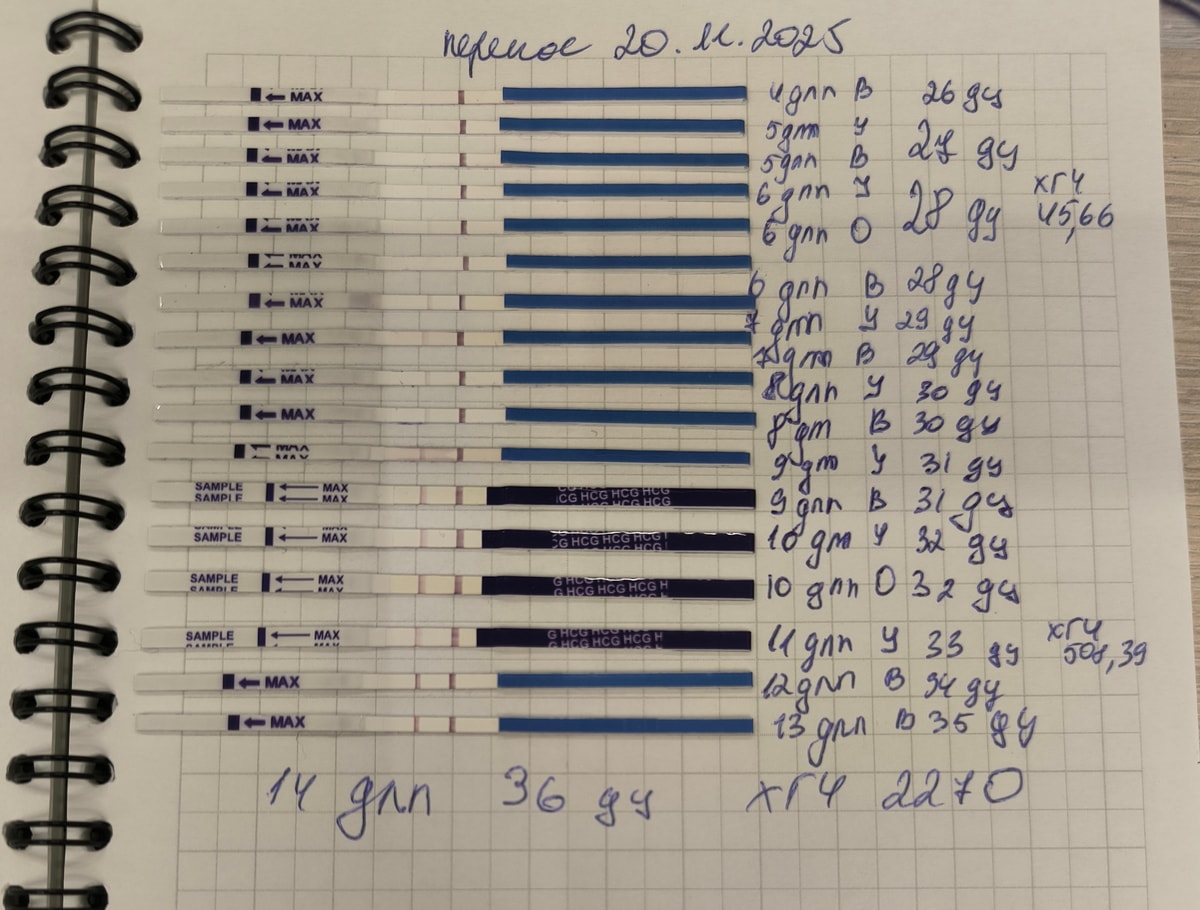 перенос 20.11.2025
MAX 4 дпп В 26 дц
MAX 5 дпп У 27 дц
MAX 5 дпп В
MAX 6 дпп У 28 дц ХГЧ 45,66
MAX 6 дпп О
MAX MAX 6 дпп В 28 дц
MAX 7 дпп У 29 дц
MAX 7 дпп В 29 дц
MAX 8 дпп У 30 дц
MAX 8 дпп В 30 дц
MAX MAX 9 дпп У 31 дц
SAMPLE SAMPLE MAX MAX CG HCG HCG HCG ICG HCG HCG HCG 9 дпп В 31 дц
SAMPLE SAMPLE MAX CG HCG HCG HCG 10 дпп У 32 дц
SAMPLE SAMPLE MAX G HCG HCG HCG H 10 дпп О 32 дц
SAMPLE MAX G HCG HCG HCG H 11 дпп У 33 дц ХГЧ 508,39
MAX 12 дпп В 34 дц
MAX 13 дпп В 35 дц
14 дпп 36 дц ХГЧ 2270